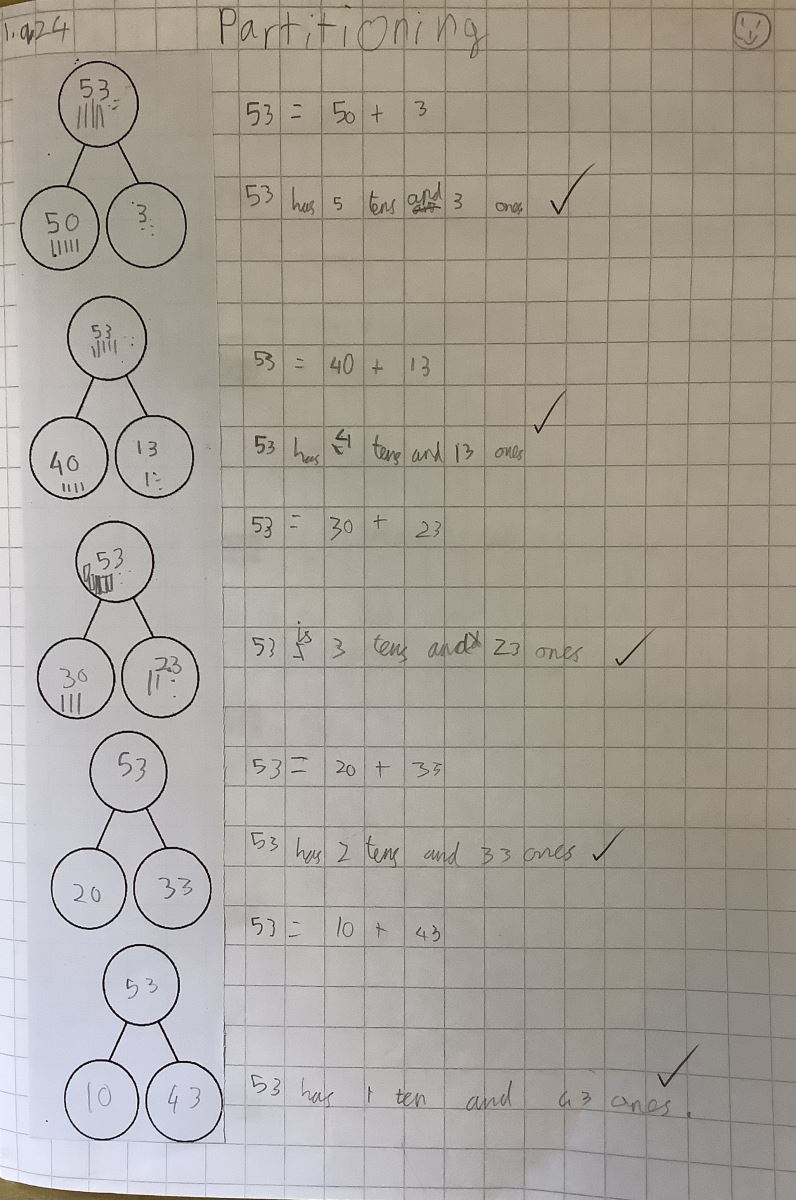 1.9.24 Partitioning
53
50 3
53 = 50 + 3
53 has 5 tens and 3 ones
53
40 13
53 = 40 + 13
53 has 4 tens and 13 ones
53
30 23
53 = 30 + 23
53 is 3 tens and 23 ones
53
20 33
53 = 20 + 33
53 has 2 tens and 33 ones
53
10 43
53 = 10 + 43
53 has 1 ten and 43 ones.